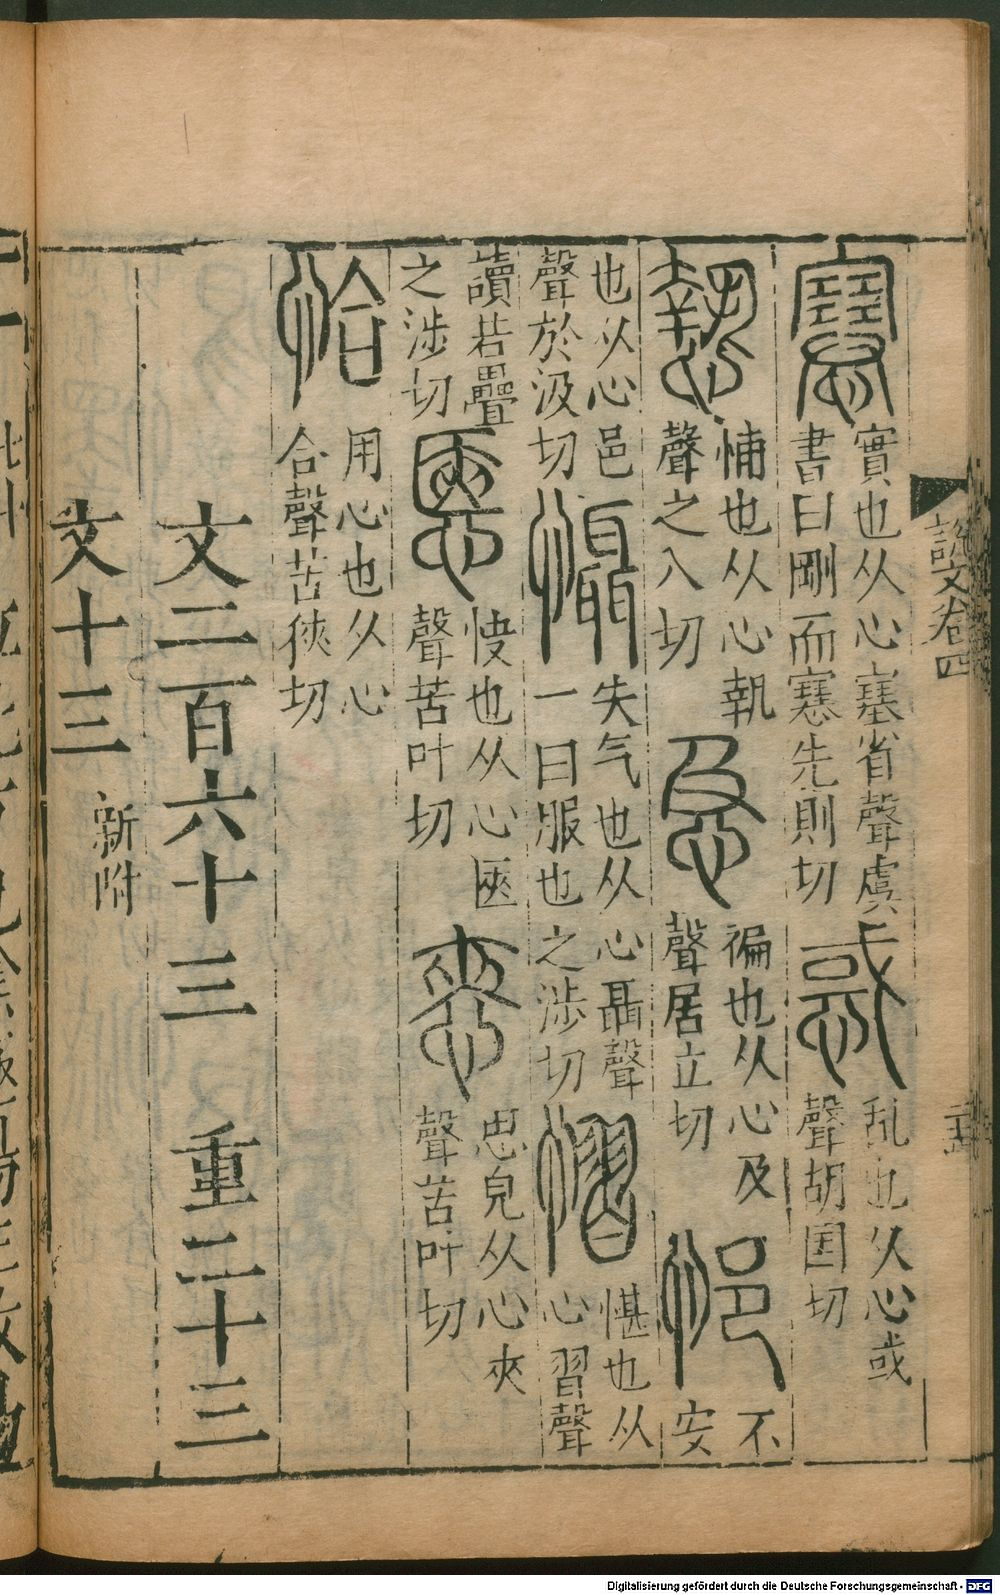 說文卷四
𡫳 實也从心塞省聲虞書曰剛而𡫳先則切 惑 亂也从心或聲胡国切
慹 悑也从心執聲之入切 急 褊也从心及聲居立切 悒 不安
也从心邑聲於汲切 懾 失气也从心聶聲一曰服也之涉切 慴 惵也从心習聲
讀若疊之涉切 㥦 快也从心匧聲苦叶切 㤲 思皃从心夾聲苦叶切
恰 用心也从心合聲苦狹切
文二百六十三 重二十三
文十三 新附
Digitalisierung gefördert durch die Deutsche Forschungsgemeinschaft - DFG